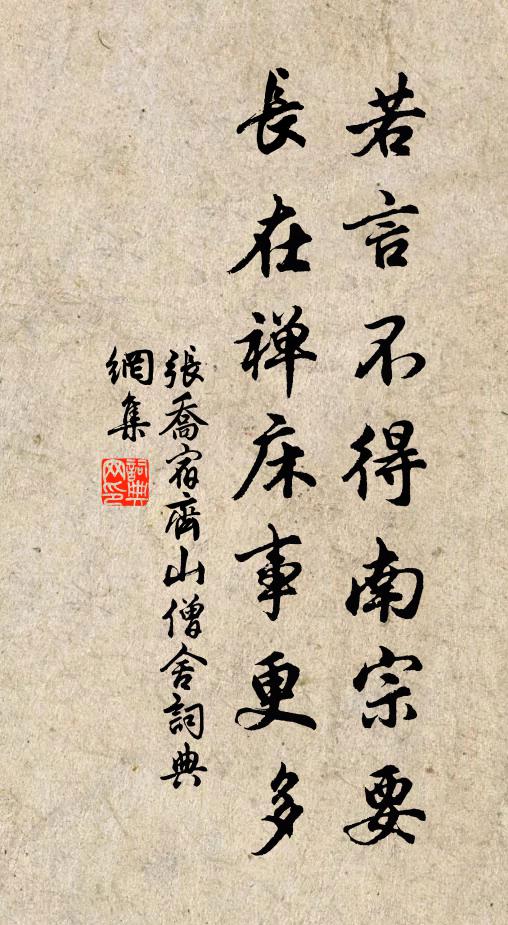 若言不得南宗要
長在禅床事更多
張喬宿齊山僧舍詞典
網集
詞典
网印